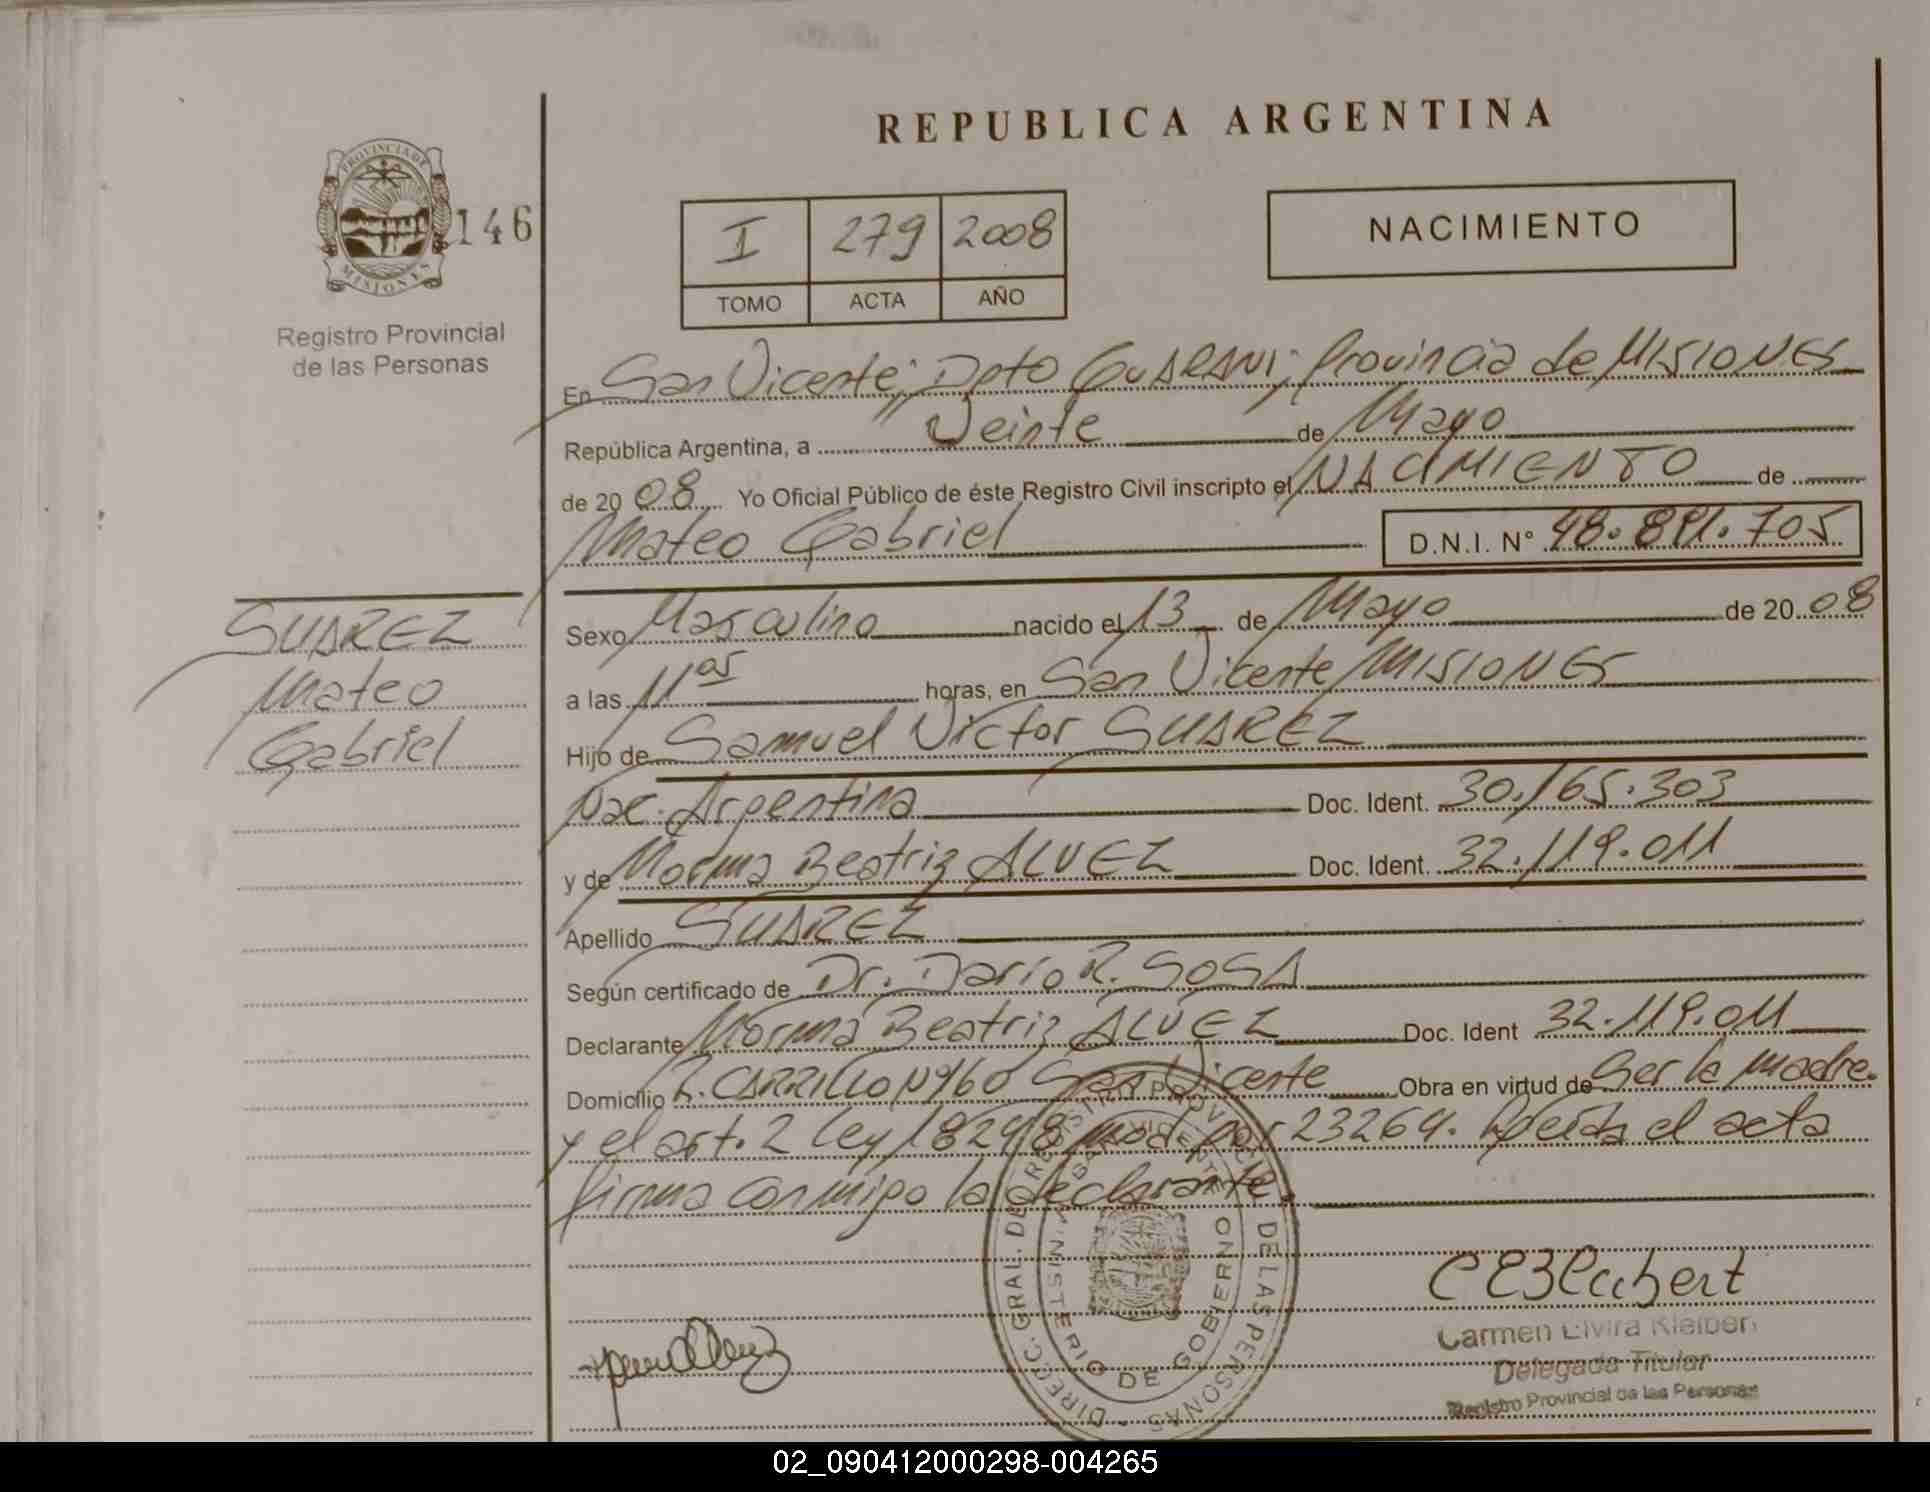 REPUBLICA ARGENTINA
PROVINCIA DE
MISIONES
146
Registro Provincial
de las Personas
I 279 2008
TOMO ACTA AÑO
NACIMIENTO
En San Vicente, Dpto GUARANI, Provincia de MISIONES
República Argentina, a Veinte de Mayo
de 20 08 Yo Oficial Público de éste Registro Civil inscripto el NACIMIENTO de
Mateo Gabriel D.N.I. N° 48.891.705
SUAREZ
Mateo
Gabriel
Sexo Masculino nacido el 13 de Mayo de 20 08
a las 11 05 horas, en San Vicente MISIONES
Hijo de Samuel Victor SUAREZ
Nac. Argentina Doc. Ident. 30.165.303
y de Norma Beatriz ALVEZ Doc. Ident. 32.119.011
Apellido SUAREZ
Según certificado de Dr. Dario R. SOSA
Declarante Norma Beatriz ALVEZ Doc. Ident 32.119.011
Domicilio R. CARRILLO Nº60 San Vicente Obra en virtud de Ser la madre.
y el art. 2 Ley 18248 mod. por 23264. Leída el acta
firma conmigo la declarante.
DIRECC. GRAL. DE REGISTRO PROVINCIAL DE LAS PERSONAS
SAN VICENTE
MINISTERIO DE GOBIERNO
Carmen Elvira Kleibert
Delegada Titular
Registro Provincial de las Personas
02_090412000298-004265